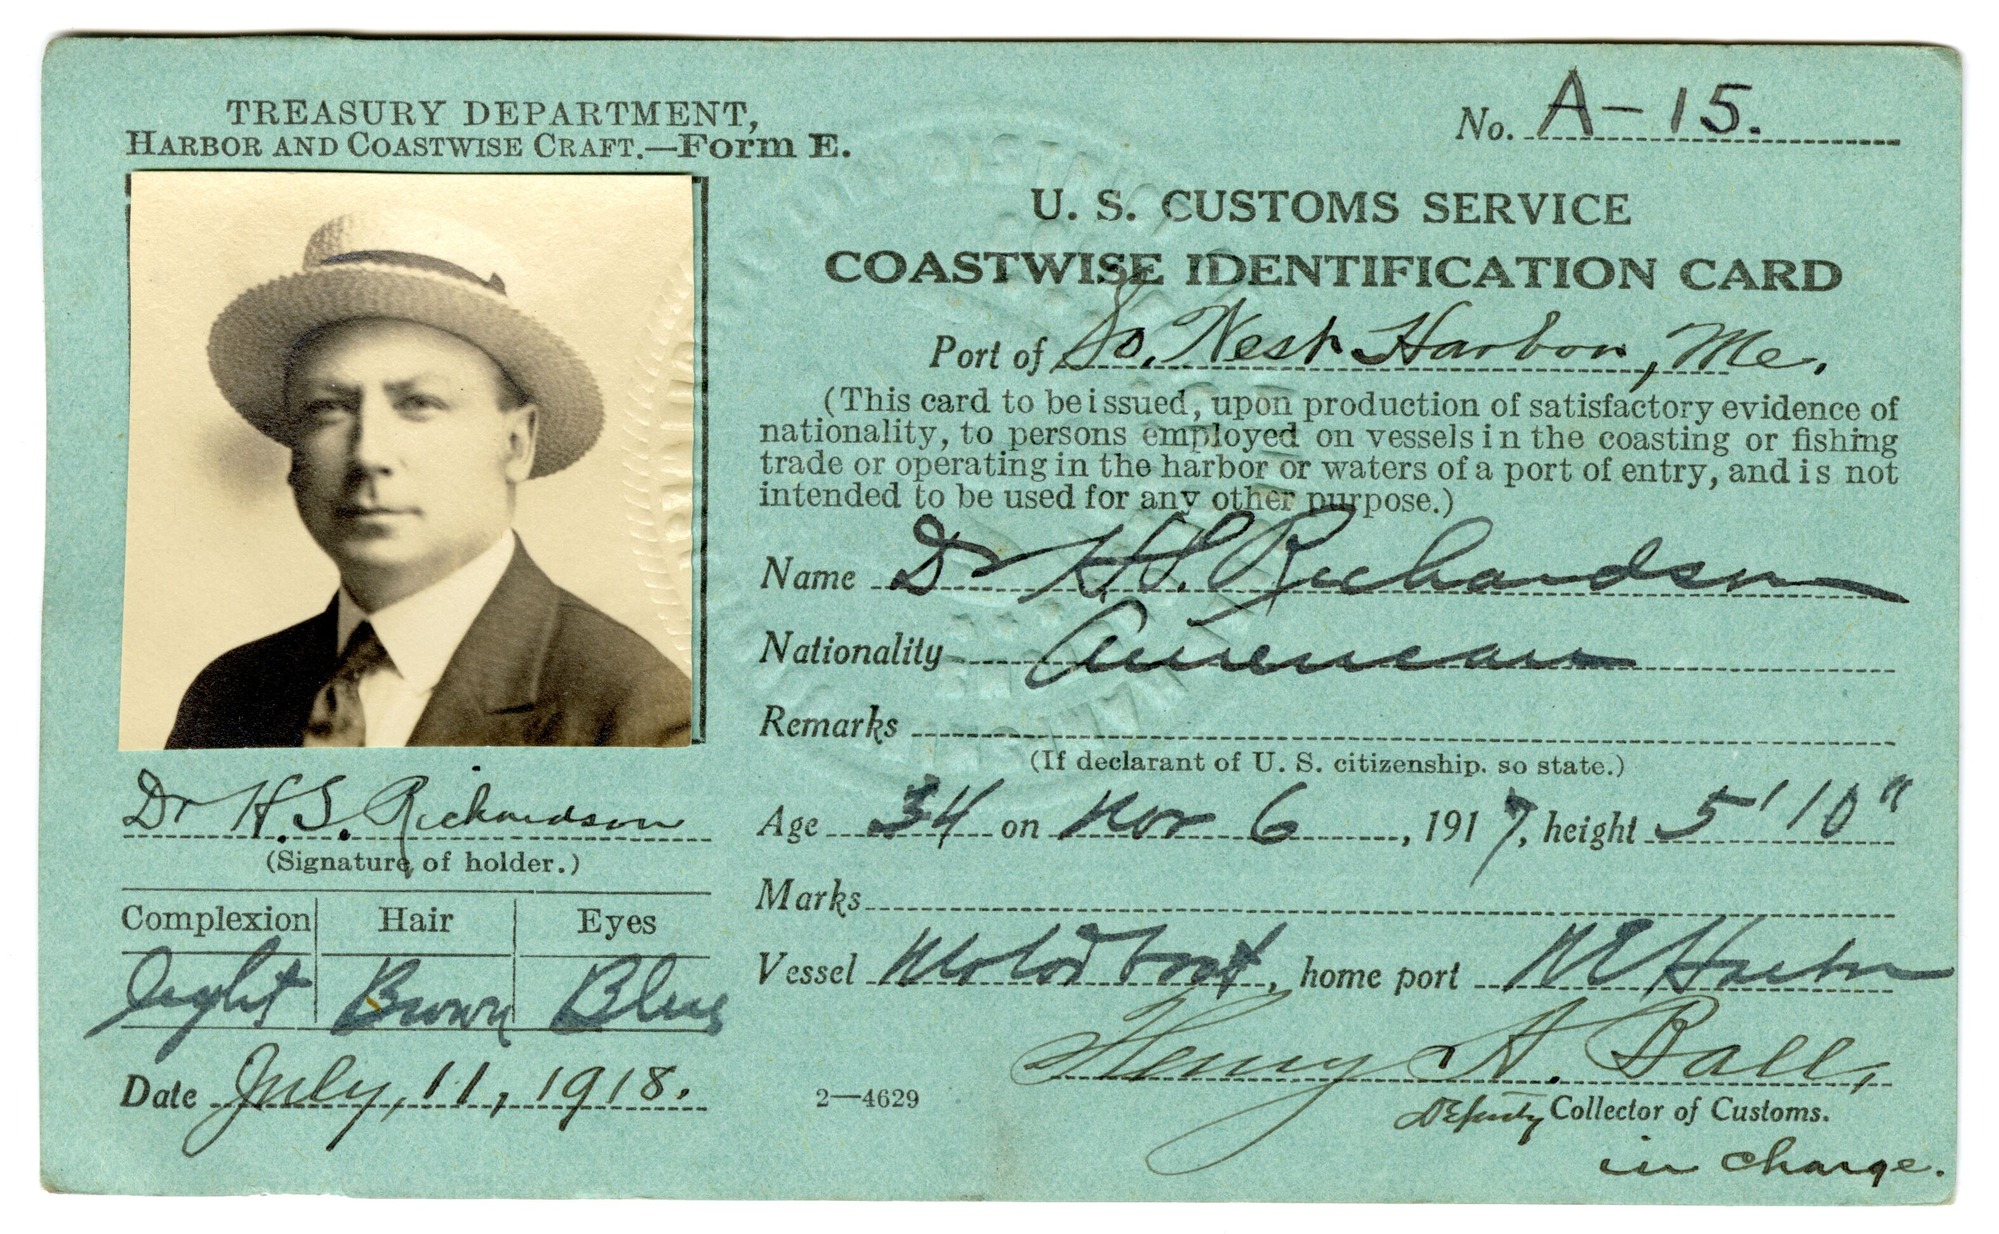 TREASURY DEPARTMENT,
HARBOR AND COASTWISE CRAFT.—Form E.
No. A-15.
U. S. CUSTOMS SERVICE
COASTWISE IDENTIFICATION CARD
Port of So. West Harbor, Me.
(This card to be issued, upon production of satisfactory evidence of
nationality, to persons employed on vessels in the coasting or fishing
trade or operating in the harbor or waters of a port of entry, and is not
intended to be used for any other purpose.)
Name Dr H.S. Richardson
Nationality American
Remarks
(If declarant of U. S. citizenship, so state.)
Age 34 on Nov 6, 1917, height 5' 10"
Marks
Vessel Motor boat, home port N E Harbor
Henry A. Ball,
Deputy Collector of Customs.
in charge.
Dr H. S. Richardson
(Signature of holder.)
Complexion Hair Eyes
Light Brown Blue
Date July, 11, 1918.
2—4629